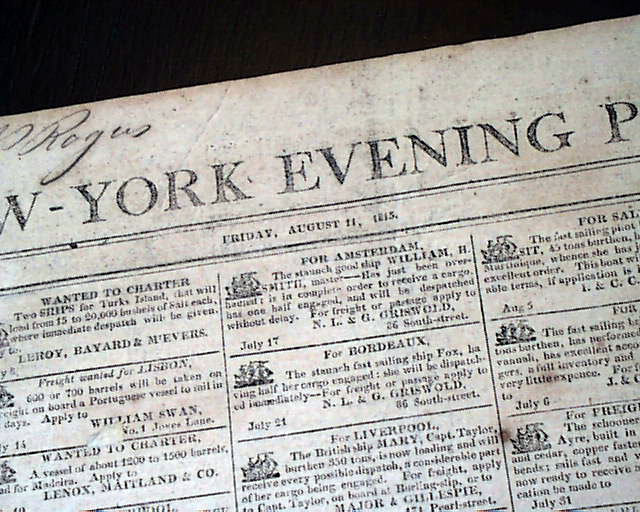 Rogus
W-YORK EVENING P
FRIDAY, AUGUST 11, 1815.
WANTED TO CHARTER
Two SHIPS for Turks Island, that will
load from 15 to 20,000 bushels of Salt each,
where immediate despatch will be given.
to
LEROY, BAYARD & M'EVERS.
Freight wanted for LISBON,
600 or 700 barrels will be taken on
freight on board a Portuguese vessel to sail in
days. Apply to
WILLIAM SWAN,
No. 1 Jones Lane.
July 14
WANTED TO CHARTER,
A vessel of about 1200 to 1500 barrels,
for Madeira. Apply to
LENOX, MAITLAND & CO.
FOR AMSTERDAM,
The staunch good ship WILLIAM, H.
SMITH, master—has just been over
hauled; is in complete order to receive a cargo,
has one half engaged, and will be despatched
without delay. For freight or passage apply to
N. L. & G. GRISWOLD,
86 South-street.
July 17
For BORDEAUX,
The staunch fast sailing ship Fox, ha
ving half her cargo engaged; she will be dispatch-
ed immediately—For freight or passage apply to
N. L. & G. GRISWOLD,
86 South-street.
July 21
For LIVERPOOL,
The British ship MARY, Capt. Taylor,
burthen 350 tons, is now loading and will
receive every possible dispatch, a considerable part
of her cargo being engaged. For freight, apply
to Capt. Taylor, on board at Burling-slip, or to
MAJOR & GILLESPIE,
171 Pearl-street.
FOR SAL
The fast sailing pilot
SIT, 45 tons burthen,
whence she has
excellent order. This boat wi
able terms, if application is
I. & C. C
Aug 5
FOR
The fast sailing
tons burthen, has perform
vannah, has excellent acco
gers, a full inventory and
very little expence. For
to
J. & C
July 6
For FREIG
The schooner
Ayre, built in
and cedar, copper fast
bends; sails fast and
now ready to receive
cation be made to
July 31